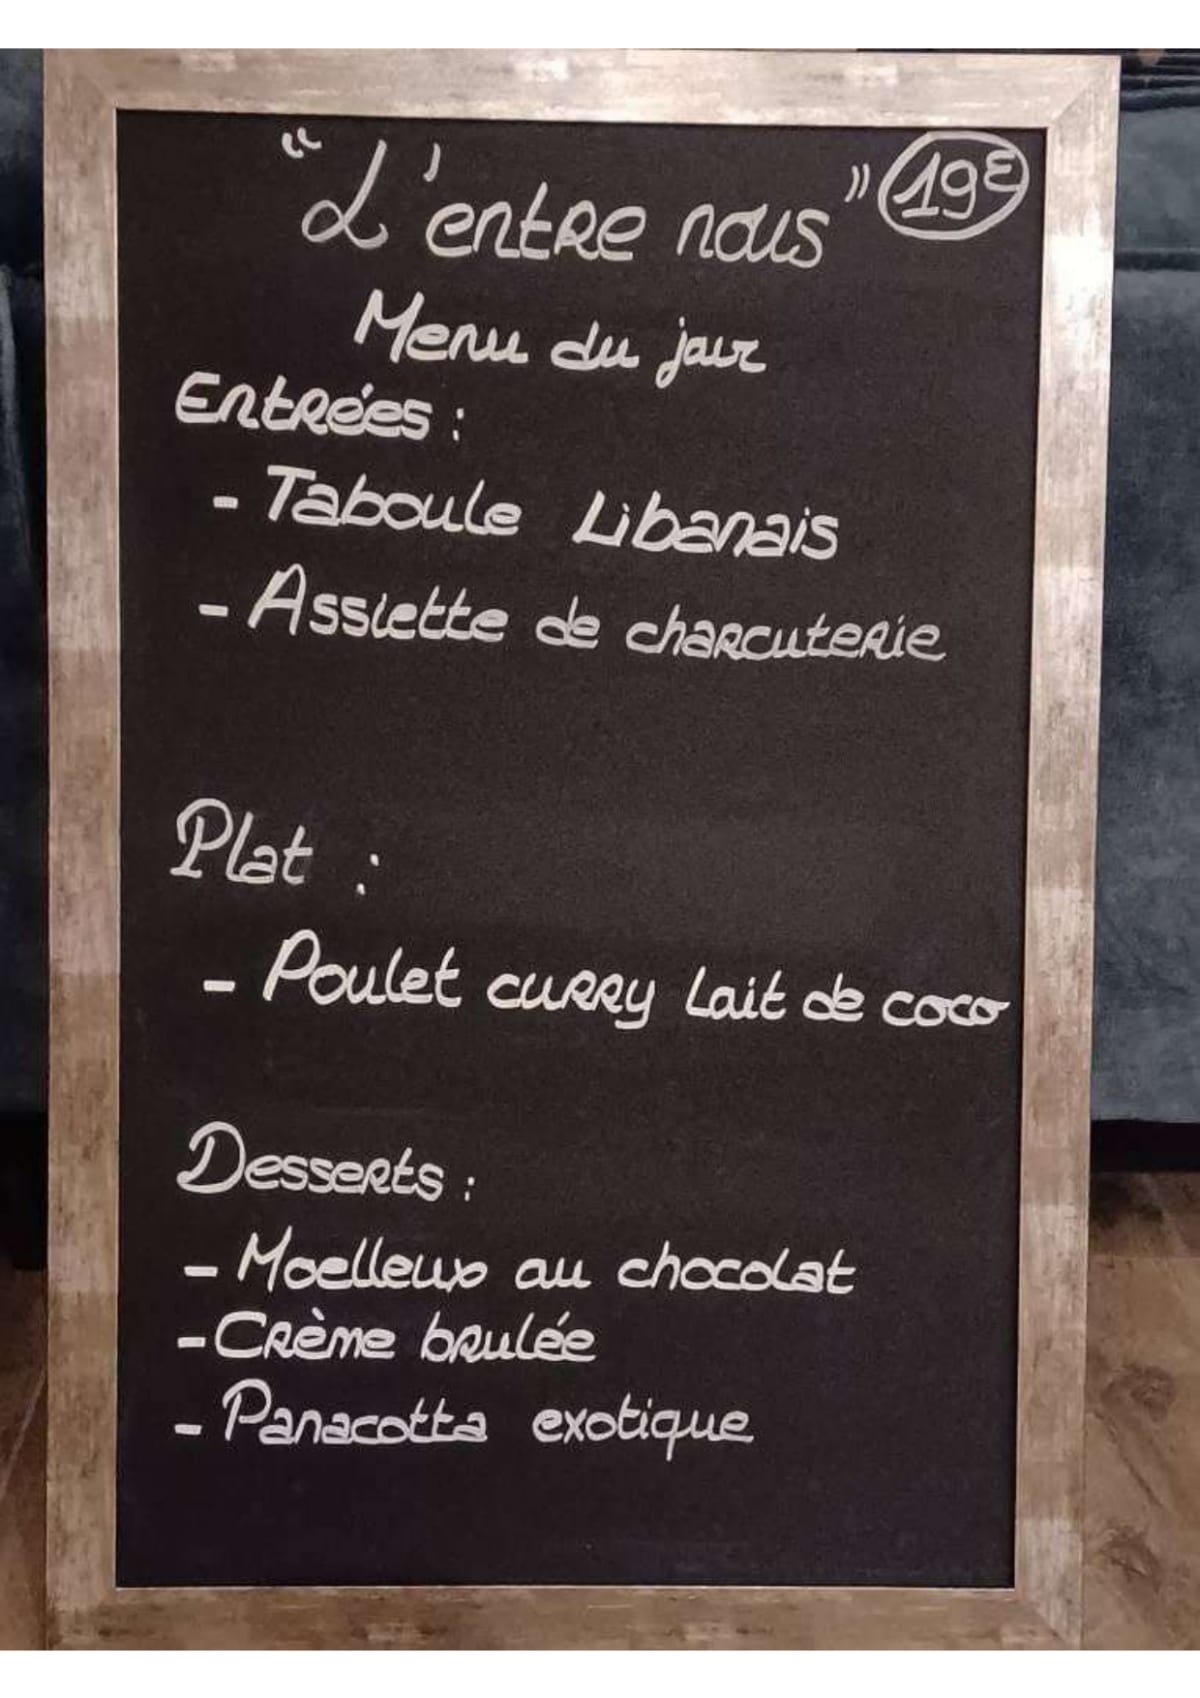 "L'entre nous" 19€
Menu du jour
Entrées :
- Taboule Libanais
- Assiette de charcuterie
Plat :
- Poulet curry Lait de coco
Desserts :
- Moelleux au chocolat
- Crème brulée
- Panacotta exotique